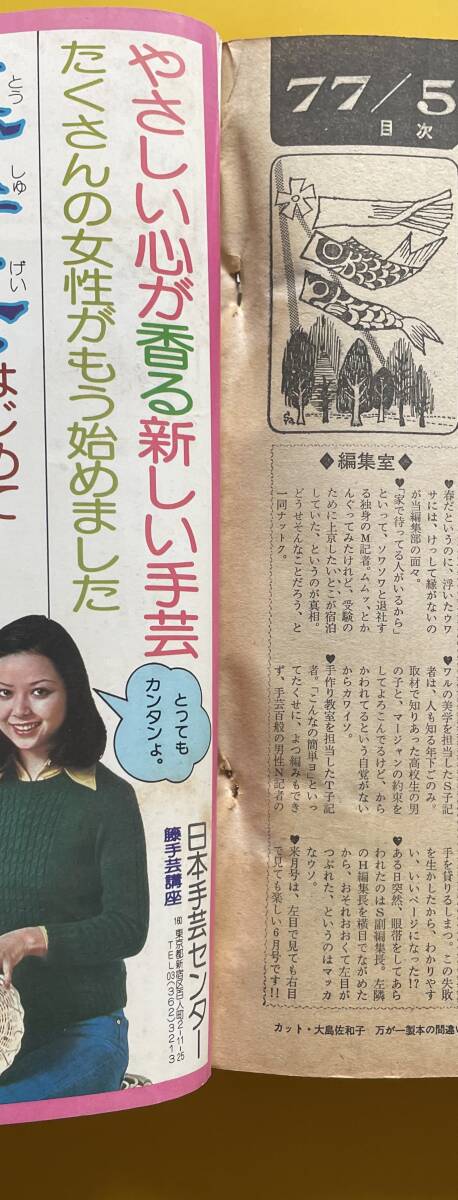 77/5
目次
◆編集室◆
♥春だというのに、浮いたウワ
サには、けっして縁がないの
が当編集部の面々。
♥「家で待ってる人がいるから」
といって、ソワソワと退社す
る独身のM記者。ムムッ、とか
んぐってみたけれど、受験の
ために上京したいとこが宿泊
していた、というのが真相。
どうせそんなことだろう、と
一同ナットク。
♥ワルの美学を担当したS子記
者は、人も知る年下ごのみ。
取材で知りあった高校生の男
の子と、マージャンの約束を
してよろこんでるけど、から
かわれてるという自覚がない
からカワイソ。
♥手作り教室を担当したT子記
者。「こんなの簡単ョ」といっ
てたくせに、よつ編みもでき
ず、手芸百般の男性N記者の
手を貸りるしまつ。この失敗
を生かしたから、わかりやす
い、いいページになった!?
♥ある日突然、眼帯をしてあら
われたのはS副編集長。左隣
のH編集長を横目でながめた
から、おそれおおくて左目が
つぶれた、というのはマッカ
なウソ。
♥来月号は、左目で見ても右目
で見ても楽しい6月号です!!
カット・大島佐和子 万が一製本の間違い
やさしい心が香る新しい手芸
たくさんの女性がもう始めました
とう
しゅ
げい
はじめて
とっても
カンタンよ。
日本手芸センター
籐手芸講座
160 東京都新宿区百人町2-11-25
TEL 03(362)3213